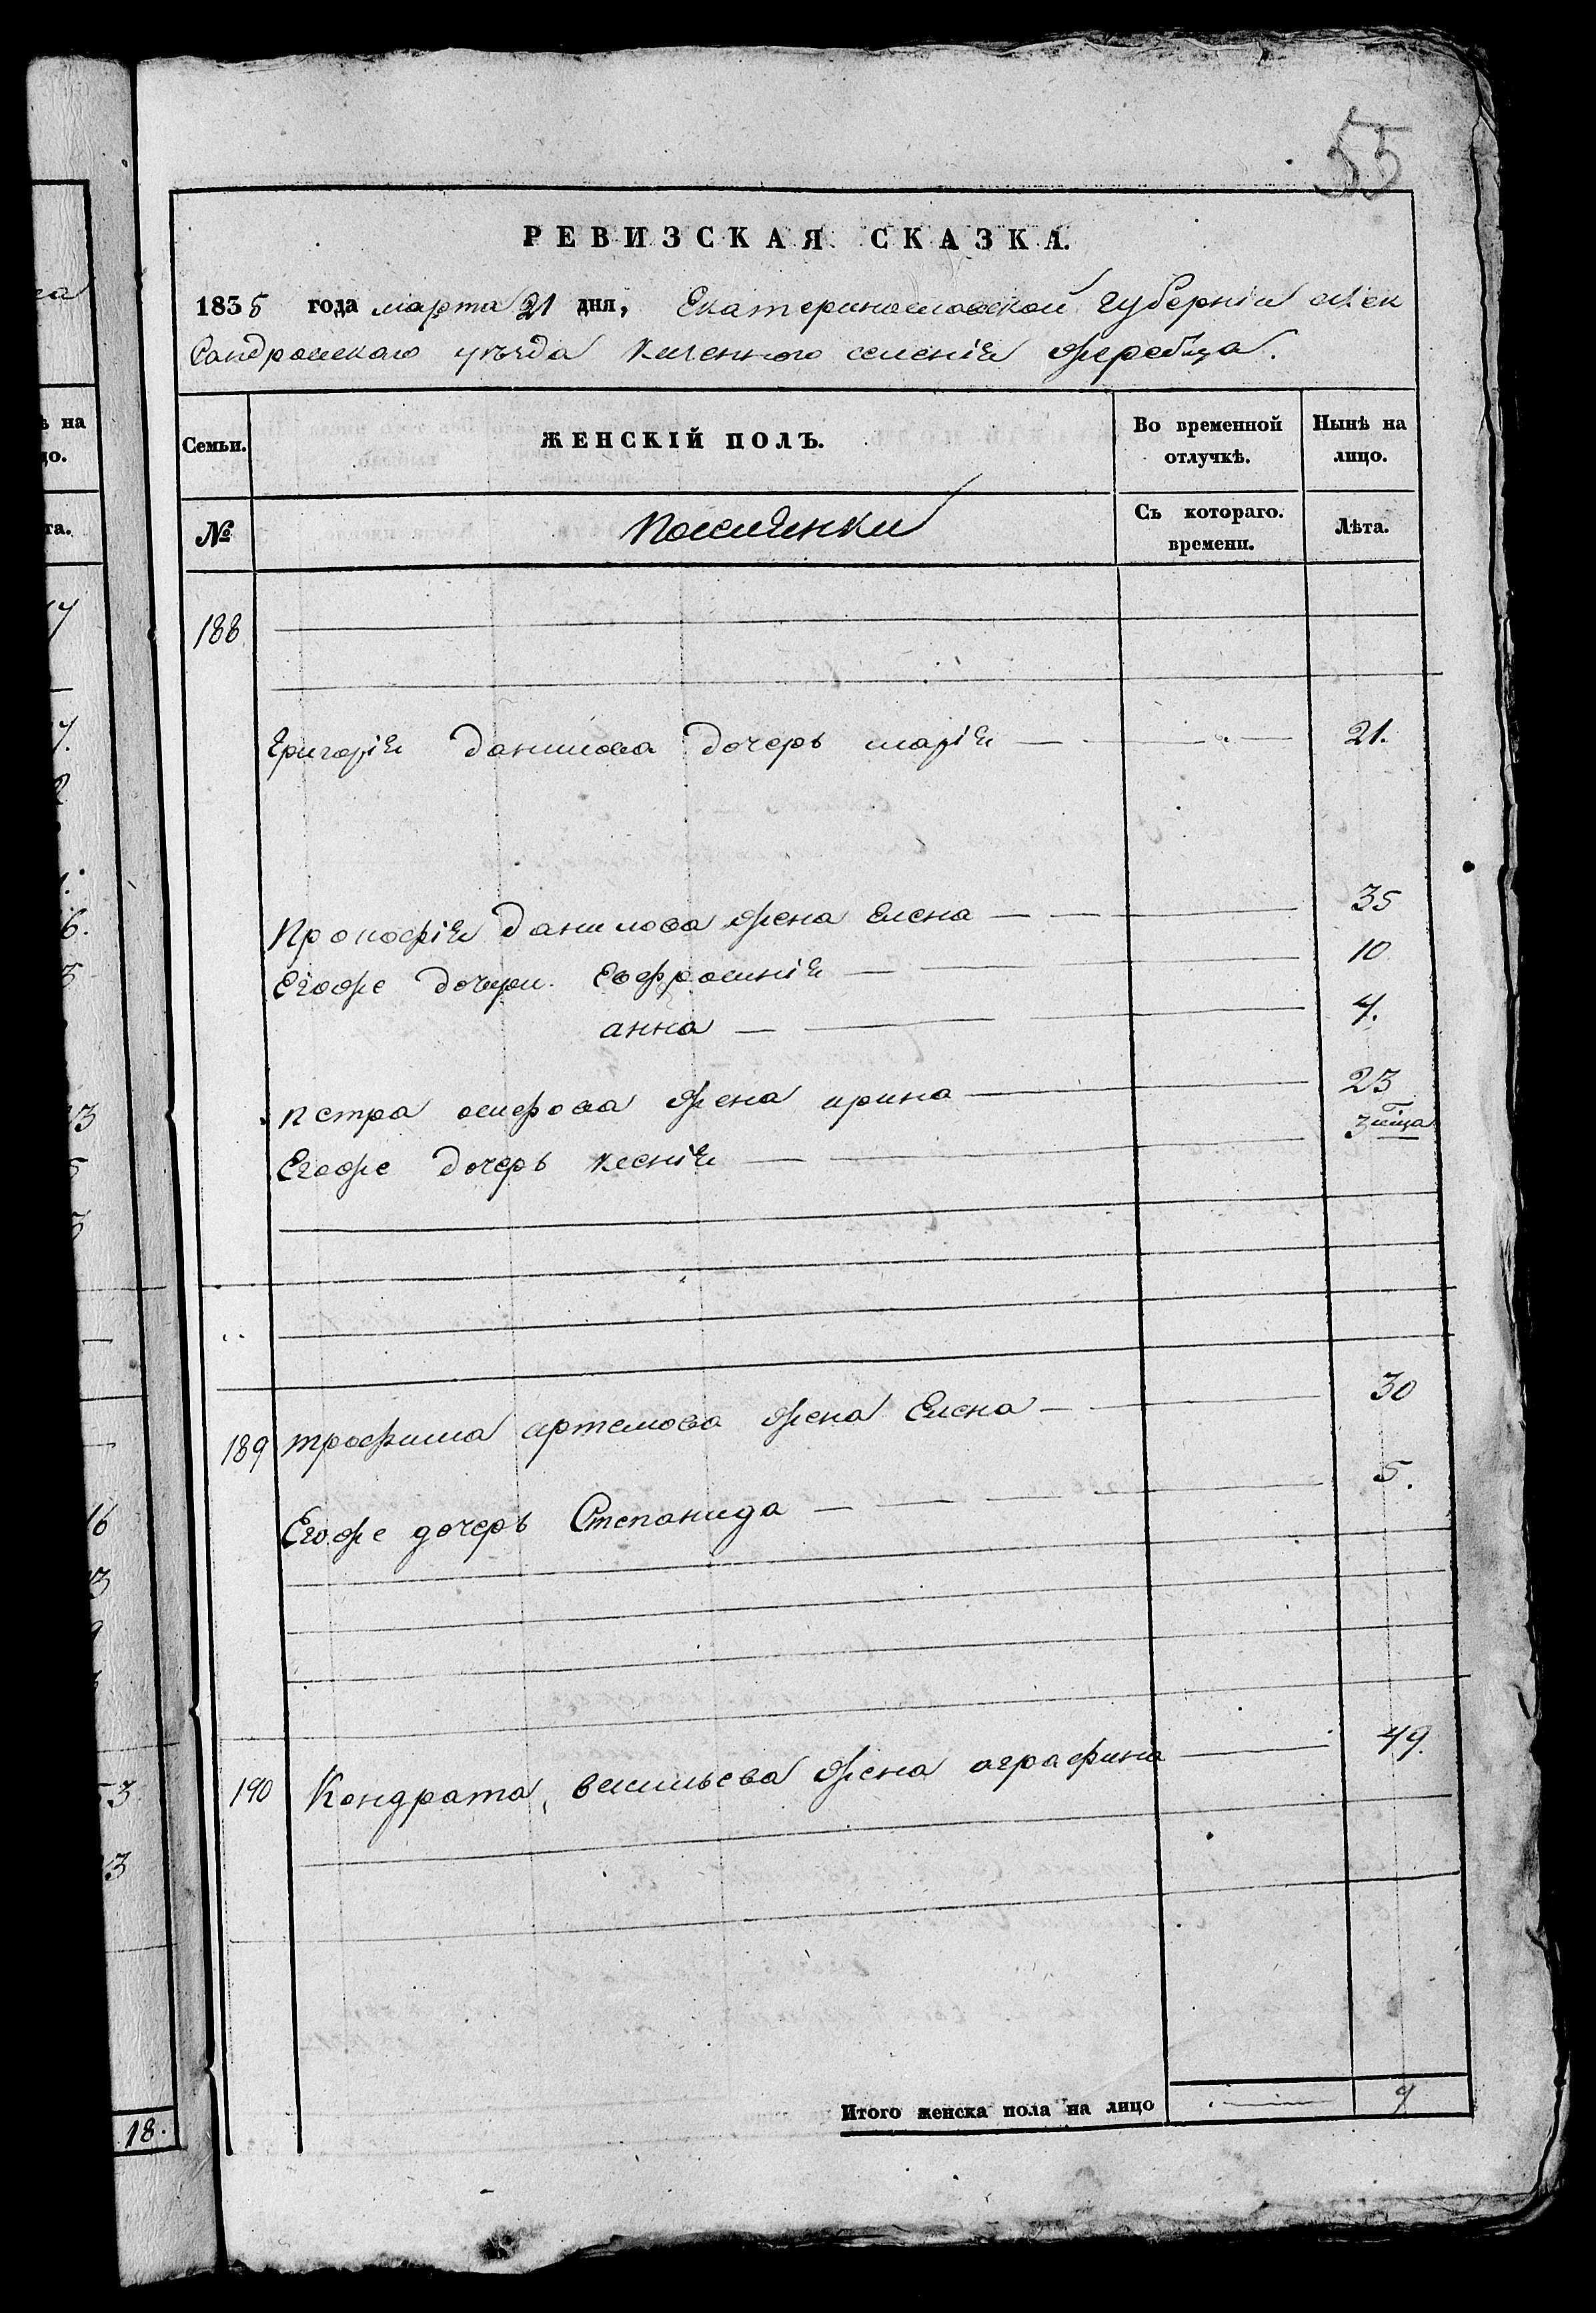 55
РЕВИЗСКАЯ СКАЗКА.
1835 года марта 21 дня, Екатеринославской губерніи алек
сандровскаго уѣзда казенного селенія жеребца.
Семьи.
ЖЕНСКІЙ ПОЛЪ.
Во временной отлучкѣ.
Нынѣ на лицо.
№
Поселянки
Съ котораго. времени.
Лѣта.
188
Григорія данилова дочерь марія 21.
Прокофія данилова жена елена 35
Егоже дочери Евфросинія 10
анна 4.
петра осифова жена ирина 23
Егоже дочерь ксенія 3
189 трофима артемова жена Елена 30
Егоже дочерь Степанида 5.
190 Кондрата васильева жена аграфина 49.
Итого женска пола на лицо 9
на
та.
16
18.